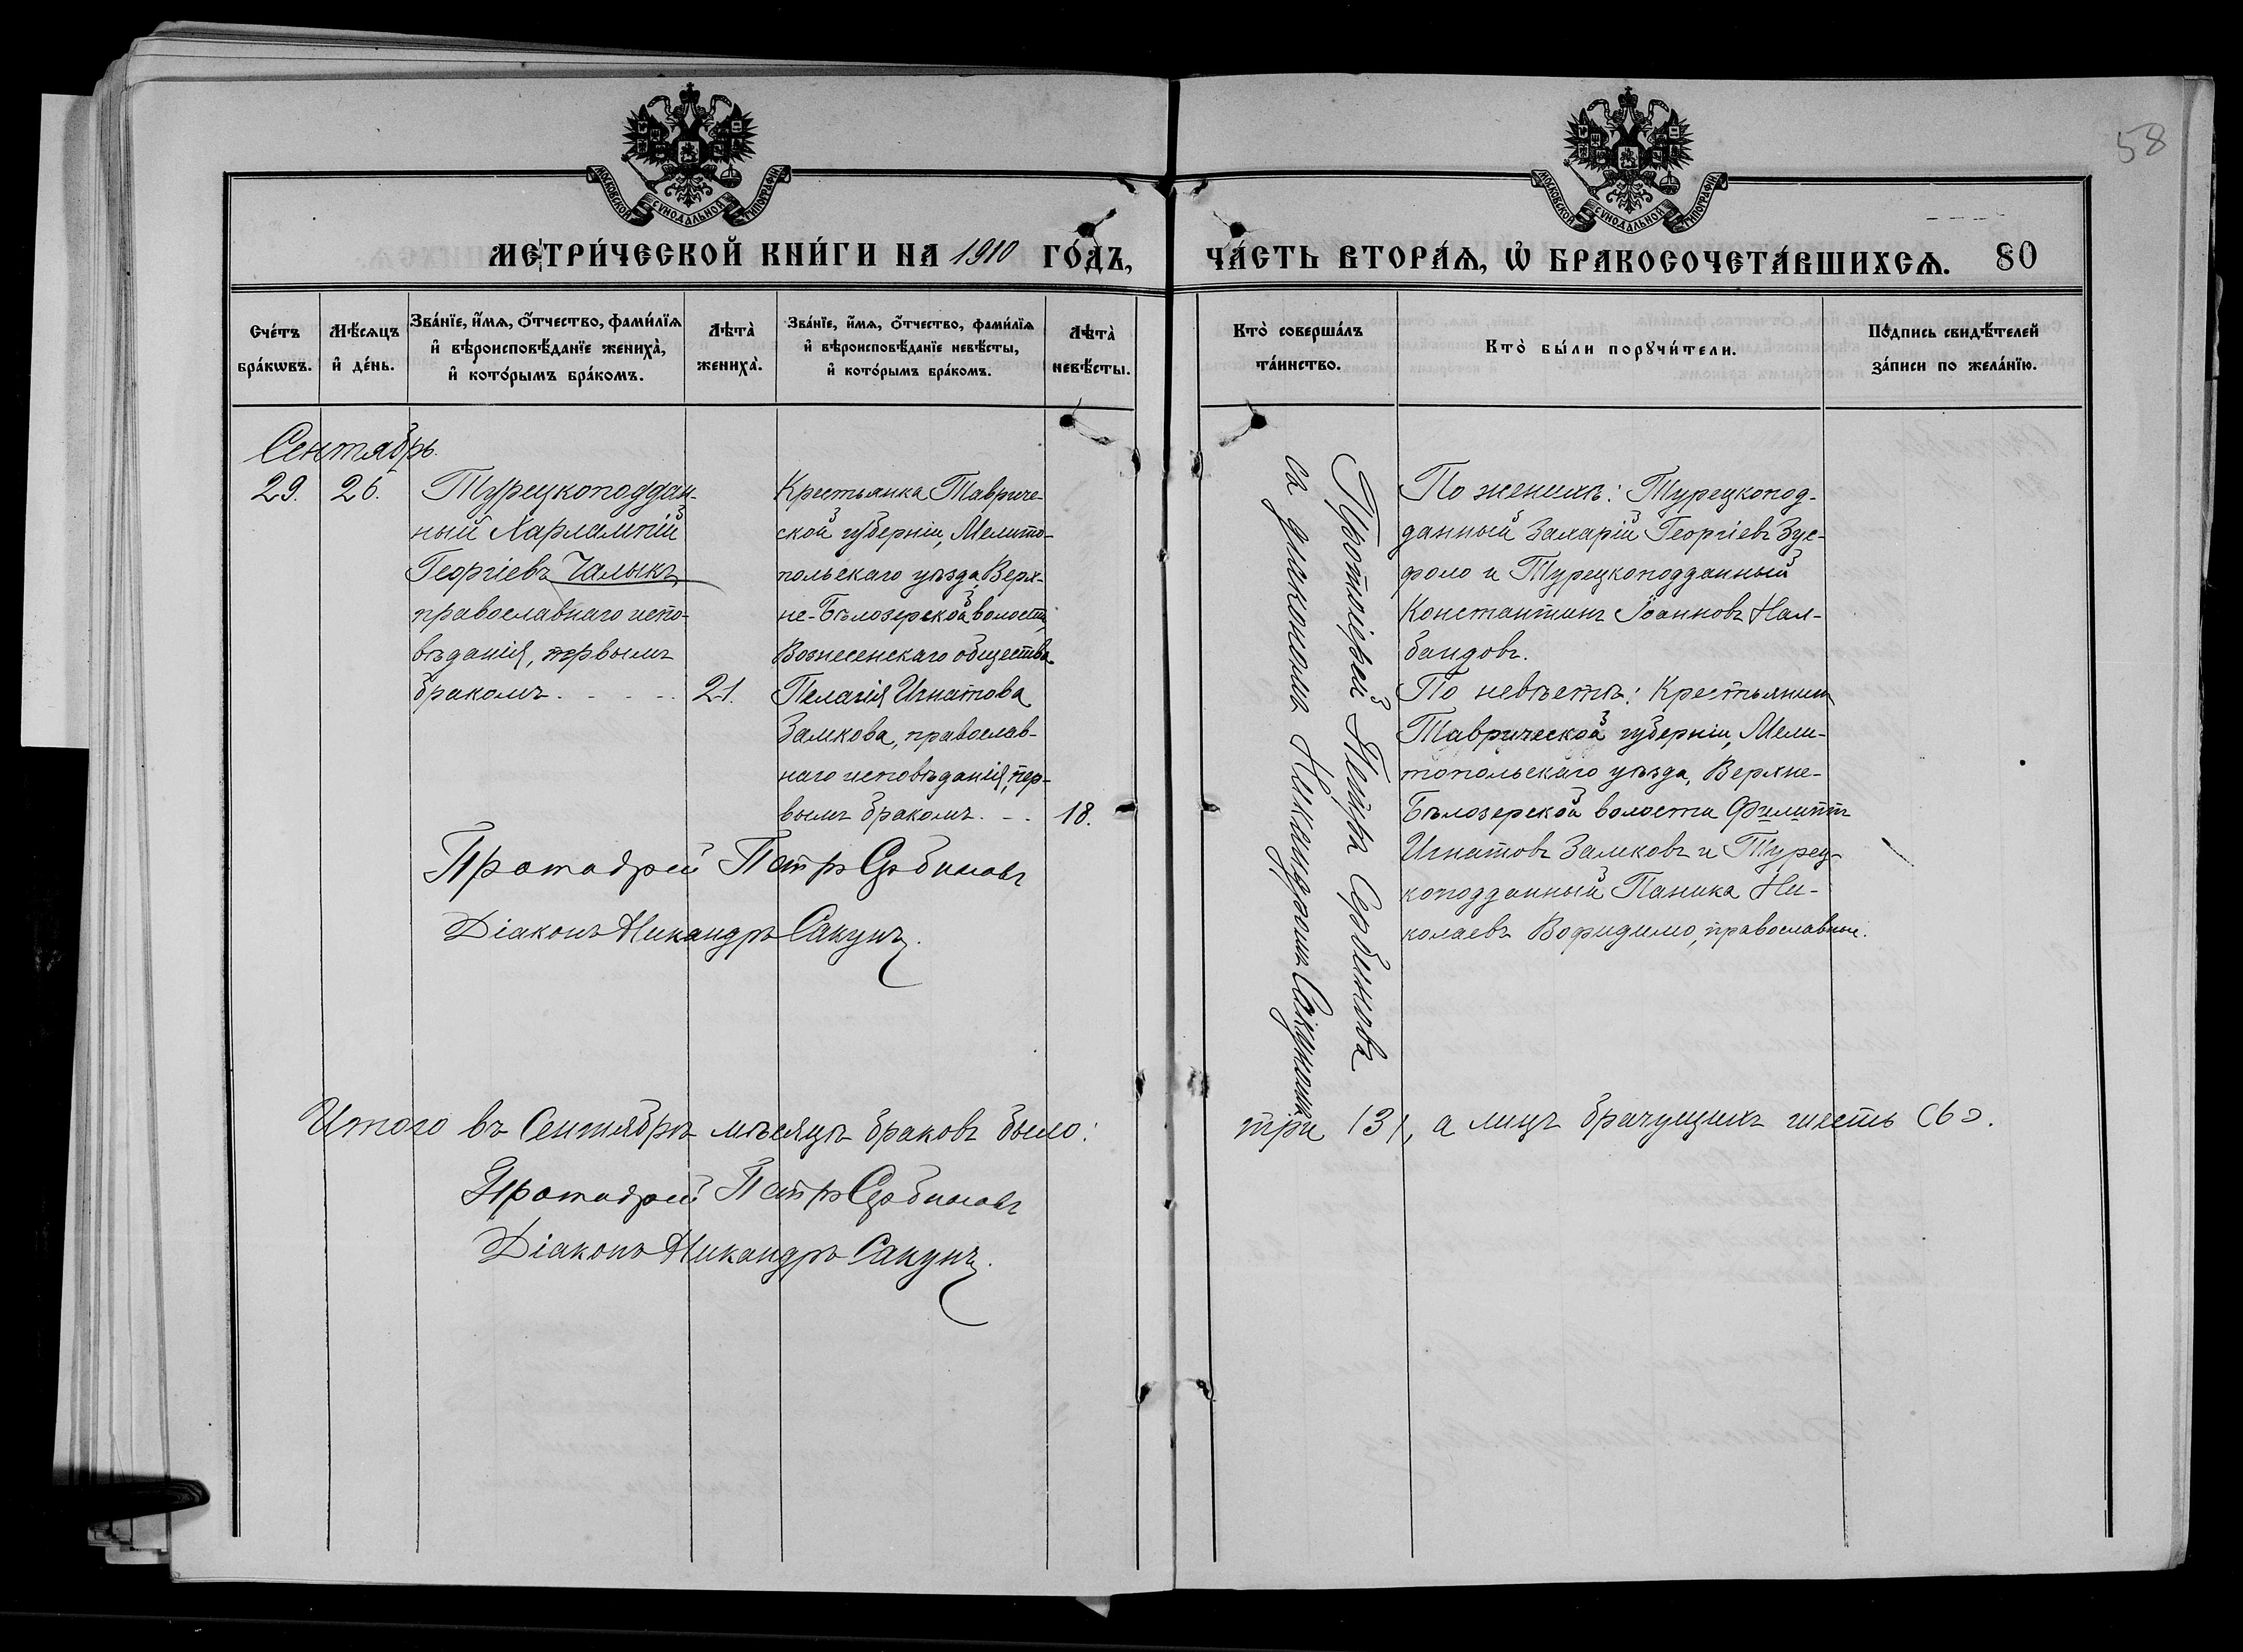 58
МОСКОВСКОЙ СѴНОДАЛЬНОЙ ТИПОГРАФІИ
МОСКОВСКОЙ СѴНОДАЛЬНОЙ ТИПОГРАФІИ
МЕТРИ́ЧЕСКОЙ КНИ́ГИ НА 1910 ГО́ДЪ,
ЧА́СТЬ ВТОРА́Ѧ, Ѡ҆ БРАКОСОЧЕТА́ВШИХСѦ. 80
Сче́тъ бра́кѡвъ.
Мѣ́сѧцъ и҆ де́нь.
Зва́нїе, и҆́мѧ, о҆́тчество, фами́лїѧ
и҆ вѣроисповѣ́данїе жениха̀,
и҆ кото́рымъ бра́комъ.
Лѣта̀ жениха̀.
Зва́нїе, и҆́мѧ, о҆́тчество, фами́лїѧ
и҆ вѣроисповѣ́данїе невѣ́сты,
и҆ кото́рымъ бра́комъ.
Лѣта̀ невѣ́сты.
Кто̀ соверша́лъ
та́инство.
Кто̀ бы́ли порꙋчи́тели.
По́дпись свидѣ́телей
за́писи по жела́нїю.
Сентябрь.
29.
26.
Турецкоподдан-
ный Харлампій
Георгіевъ Чалыкъ,
православнаго испо-
вѣданія, первымъ
бракомъ. - - - -
21.
Крестьянка Тавриче-
ской губерніи, Мелито-
польскаго уѣзда, Верх-
не-Бѣлозерской волости,
Вознесенскаго общества
Пелагія Игнатова
Замкова, православ-
наго исповѣданія, пер-
вымъ бракомъ. - -
18.
Протоіерей Петръ Сербиновъ
Діаконъ Никандръ Сакунъ.
Протоіерей Петръ Сербиновъ
съ діакономъ Никандромъ Сакуномъ
По женихѣ: Турецкопод-
данный Захарій Георгіевъ Зус-
фоло и Турецкоподданный
Константинъ Іоанновъ Нал-
бандовъ.
По невѣстѣ: Крестьянинъ
Таврической губерніи, Мели-
топольскаго уѣзда, Верхне-
Бѣлозерской волости Филиппъ
Игнатовъ Замковъ и Турец-
коподданный Паника Ни-
колаевъ Вофидимо, православные.
Итого въ Сентябрѣ мѣсяцѣ браковъ было: три (3), а лицъ брачущихъ шесть (6).
Протоіерей Петръ Сербиновъ
Діаконъ Никандръ Сакунъ.